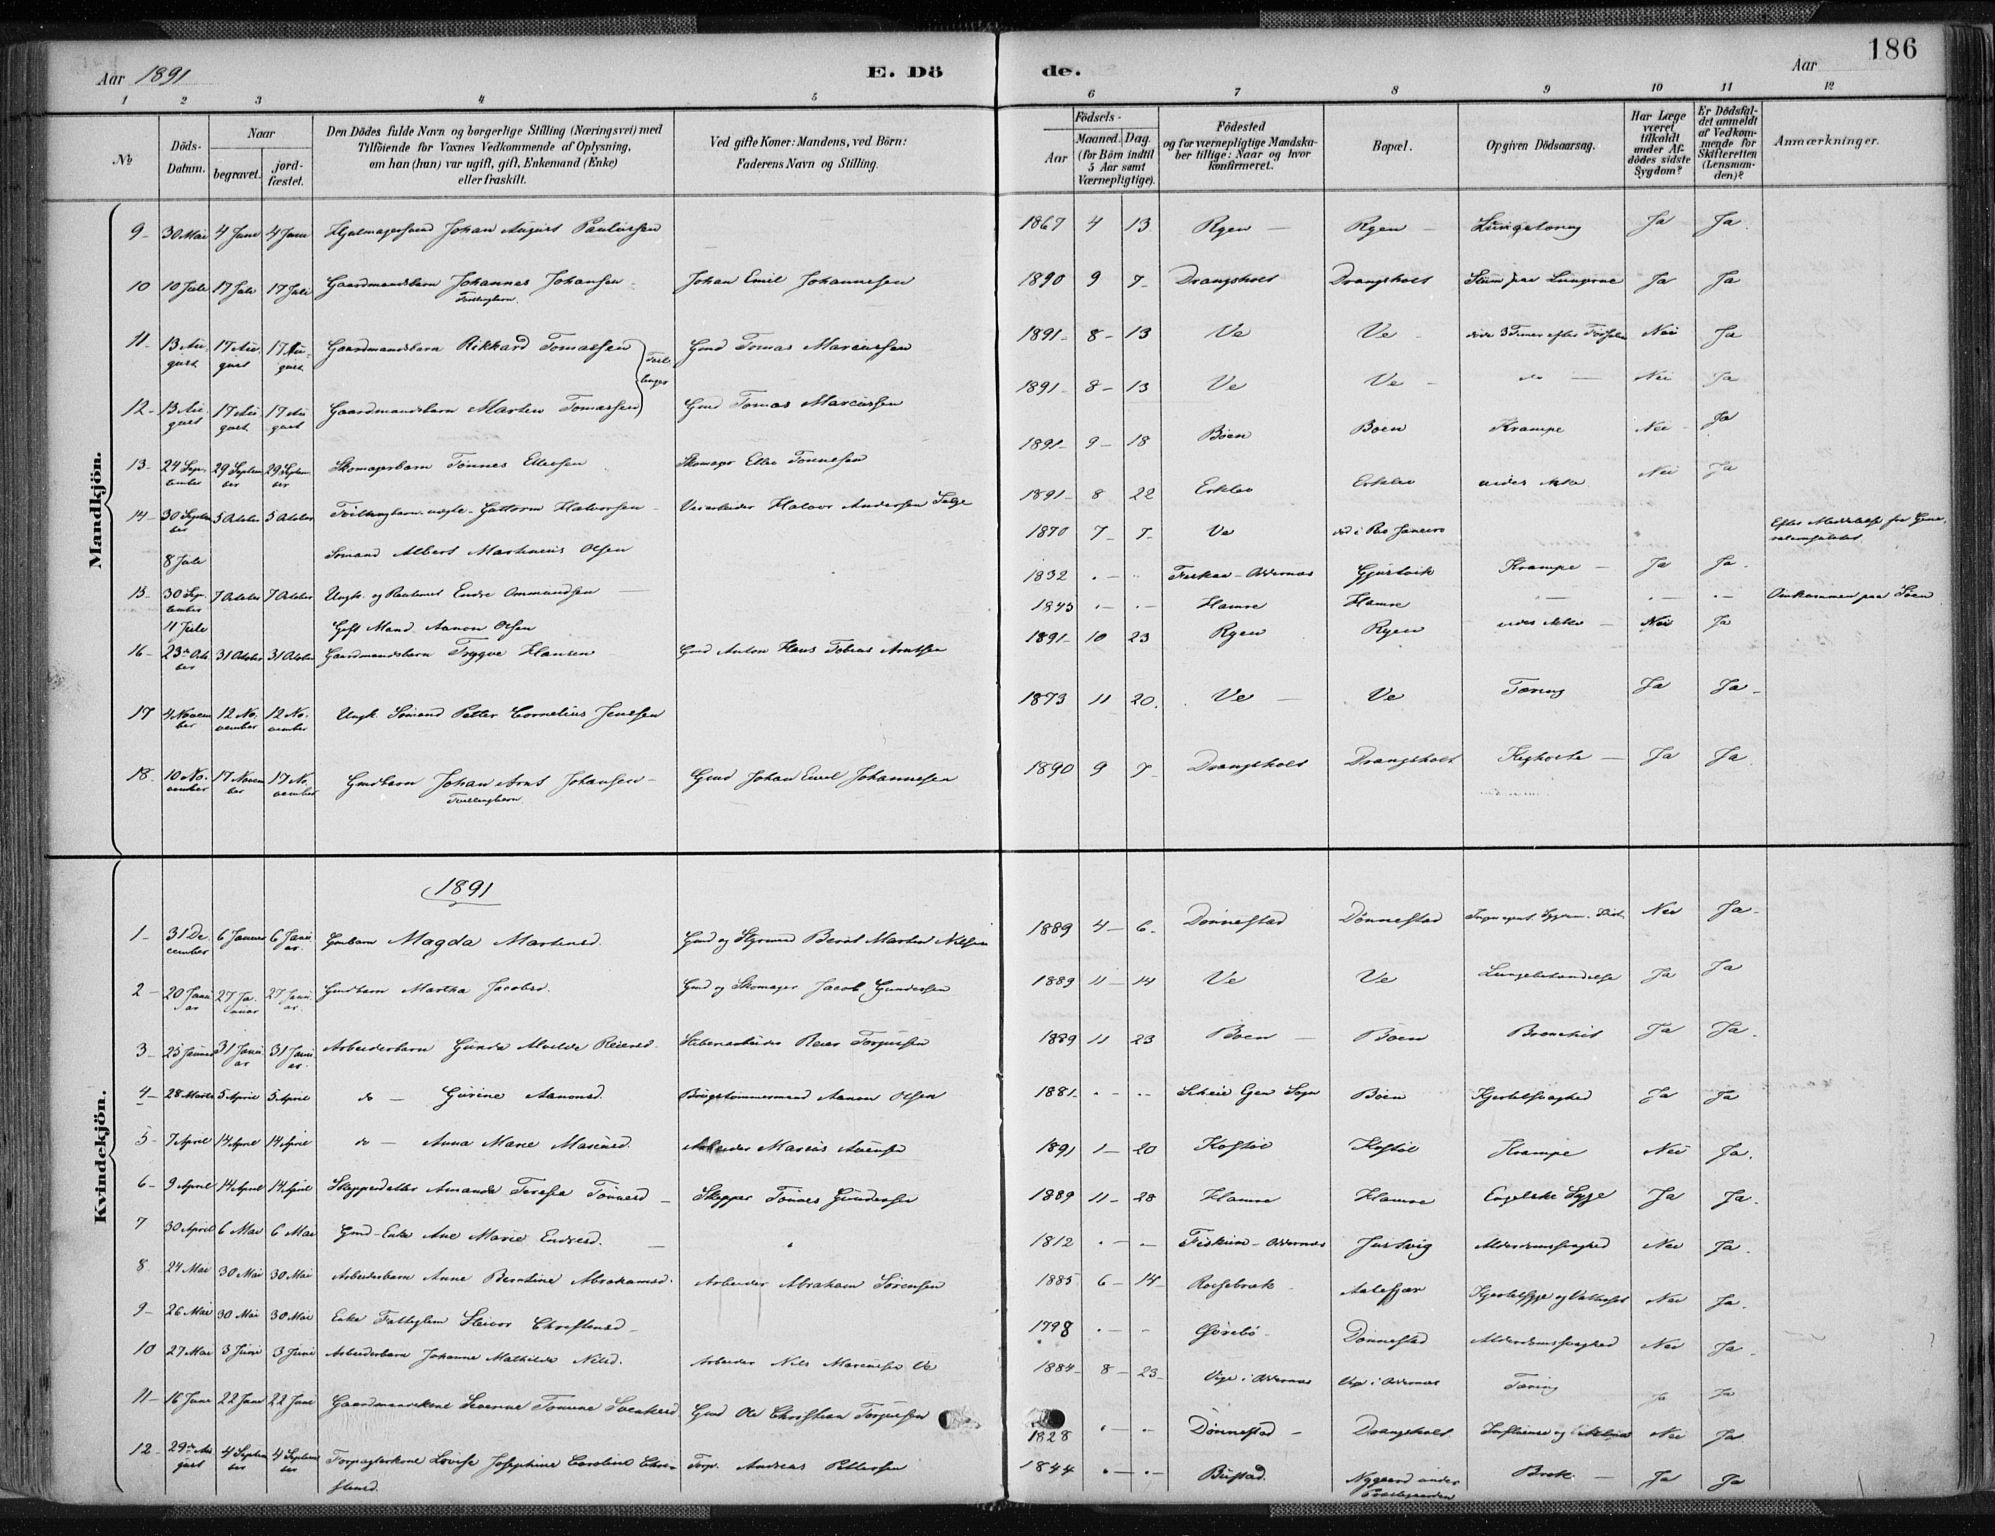 Aar 1891
E. Dö
de.
Aar
186
1 2 3 4 5 6 7 8 9 10 11 12
No
Döds-Datum.
Naar
begravet.
jord-fæstet.
Den Dödes fulde Navn og borgerlige Stilling (Næringsvei) med
Tilföiende for Voxnes Vedkommende af Oplysning,
om han (hun) var ugift, gift, Enkemand (Enke)
eller fraskilt.
Ved gifte Koner: Mandens, ved Börn:
Faderens Navn og Stilling.
Födsels-
Aar
Maaned. Dag.
(for Börn indtil
5 Aar samt
Værnepligtige).
Födested
og for værnepligtige Mandska-
ber tillige: Naar og hvor
konfirmeret.
Bopæl.
Opgiven Dödsaarsag.
Har Læge
været
tilkaldt
under Af-
dödes sidste
Sygdom?
Er Dödsfal-
det anmeldt
af Vedkom-
mende for
Skifteretten
(Lensman-
den)?
Anmærkninger.
Mandkjön.
9 - 30 Mai 4 Juni 4 Juni Johan August Paulussen 1867 4 13 Ryen Ryen Ja Ja
10 10 Juli 17 Juli 17 Juli Gaardmandsbarn Johannes Johansen Johan Emil Johannesen 1890 9 7 Drangsholt Drangsholt Ja Ja
Tvillingbarn
11 - 13 August 17 August 17 August Gaardmandsbarn Rikhard Tomassen Gmd Tomas Marcussen 1891 - 8 - 13 Ve Ve døde 3 Timer efter Nei Ja
Tvillinger
12 - 13 August 17 August 17 August Gaardmandsbarn Martin Tomassen Gmd Tomas Marcussen 1891 - 8 - 13 Ve Ve do Nei Ja
13 - 24 September 29 September 29 September Skomagerbarn Tønnes Ellefsen Skomager Ellef Tønnesen 1891 - 9 - 18 Boen Boen Krampe Nei Ja
14 - 30 September 5 October 5 October Tvillingbarn Guttorm Halvorsen Veiarbeider Halvor Andersen 1891 - 8 22 vides ikke Nei Ja
8 Juli Sømand Albert Martinius Olsen 1870 7 - 7 Ve død i Rio Janeiro Efter
15 - 30 September 7 October 7 October Ungk. og Endre Ommundsen 1832 - Oddernes Krampe Ja Ja
11 Juli Gift Mand Aanon Olsen 1843 Hamre Hamre Omkommen paa Søen
16 - 23 October 31 October 31 October Gaardmandsbarn Trygve Hansen Gmd Anton Hans Tobias Arntsen 1891 - 10 23 Ryen Ryen vides ikke Nei Ja
17 4 November 12 November 12 November Ungk. Sømand Petter Cornelius Jensen 1873 11 20 Ve Ve Tæring Ja Ja
18 - 10 November 17 November 17 November Gmdbarn Johan Arnt Johansen Gmd Johan Emil Johannesen 1890 9 7 Drangsholt Drangsholt Kighoste Ja Ja
Tvillingbarn
Kvindekjön.
1891
1 - 31 December 6 Januar 6 Januar Gmbarn Magda Martinsd. Gmd og Styrmand Bernt Martin Nilsen 1889 4 - 6 Dønnestad Dønnestad Nei Ja
2 - 20 Januar 27 Januar 27 Januar Gmdbarn Martha Jacobsd. Gmd og Skomager Jacob Gundersen 1889 11 - 14 Ve Ve Lungebetændelse Ja Ja
3 - 25 Januar 31 Januar 31 Januar Arbeiderbarn Gunda Alvilde Reiersd. Reier Torgussen 1889 11 23 Boen Boen Bronchit Ja Ja
4 - 28 Marts 5 April 5 April do - Gurine Aanonsd. Aanon Olsen 1881 Sogn Boen Kjertelsvaghed Ja Ja
5 - 7 April 14 April 14 April do - Anna Marie Arbeider Marius 1891 1 - 20 Kostøl Kostøl Krampe Nei Ja
6 - 9 April 14 April 14 April Skipperdatter Amanda Teresia Tønnesd. Skipper Tønnes Gundersen 1889 11 - 28 Hamre Hamre Engelske Syge Ja Ja
7 30 April 6 Mai 6 Mai Gmd-Enke Ane Marie Endresd. 1812 Oddernes Justvig Alderdomssvaghed Nei Ja
8 24 Mai 30 Mai 30 Mai Arbeiderbarn Anne Berntine Abrahamsd. Arbeider Abraham Sørensen 1885 6 - 14 Aalefjær Kjertelsyge og Nei Ja
9 - 26 Mai 30 Mai 30 Mai Enke Fattiglem Christensd. 1798 Øvrebø Dønnestad Alderdomssvaghed Nei Ja
10 27 Mai 3 Juni 3 Juni Arbeiderbarn Johanne Mathilde Nilsd. Arbeider Nils Marcussen Ve 1884 - 8 - 23 Vige i Oddernes Vige i Oddernes Tæring Ja Ja
11 - 16 Juni 22 Juni 22 Juni Gaardmandskone Tomine Gmd Ole Christian Torgussen 1828 Dønnestad Drangsholt Influenza og Nei Ja
12 - 29 August 4 September 4 September Lovise Josephine Caroline Christensd. Torp. Andreas Pettersen 1844 Bustad Nygaard under Præstegaarden Brok Ja Ja